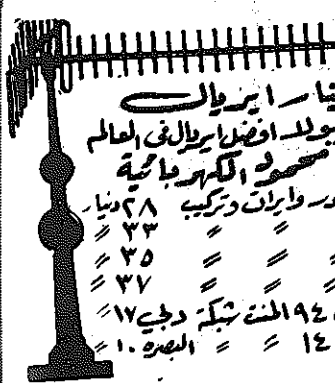 ايريال
يولد افضل ايريال في العالم
محمود الكهربائية
وايران وتركيب ٢٨ دينار
〃 〃 ٣٣ 〃
〃 〃 ٣٥ 〃
〃 〃 ٣٧ 〃
٩٤ المنت شبكة دلجي ١٧ 〃
١٤ 〃 〃 البصره ١٠ 〃